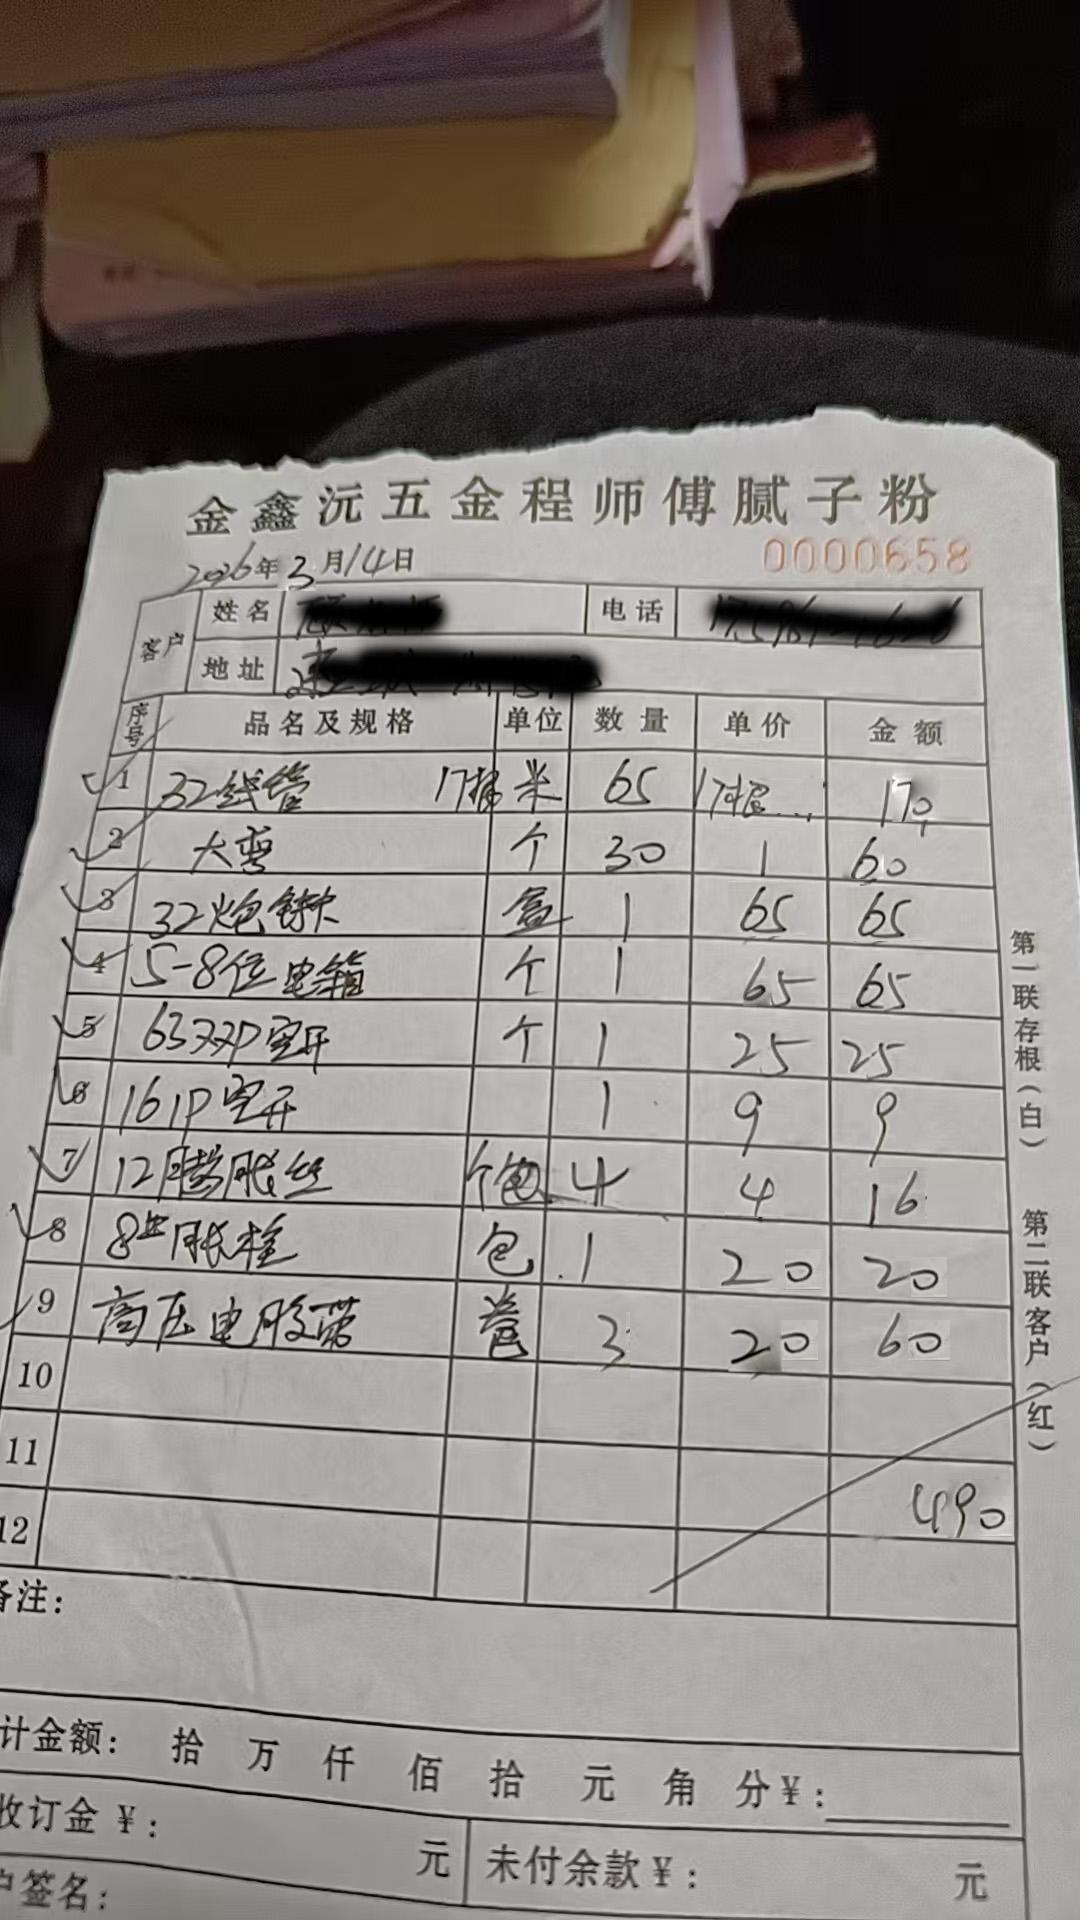 金鑫沅五金程师傅腻子粉
2026年3月14日 0000658
客户 姓名 电话
地址
序号 品名及规格 单位 数量 单价 金额
1 32线管 17根 米 65 17根... 170
2 大弯 个 30 1 60
3 32炮 盒 1 65 65
4 5-8位电箱 个 1 65 65
5 63双P空开 个 1 25 25
6 16 1P空开 1 9 9
7 12膨胀丝 个包 4 4 16
8 8#胀栓 包 1 20 20
9 高压电胶带 卷 3 20 60
10
11 490
12
备注:
计金额: 拾 万 仟 佰 拾 元 角 分¥:
收订金¥: 元 未付余款¥: 元
户签名:
第一联存根(白)
第二联客户(红)